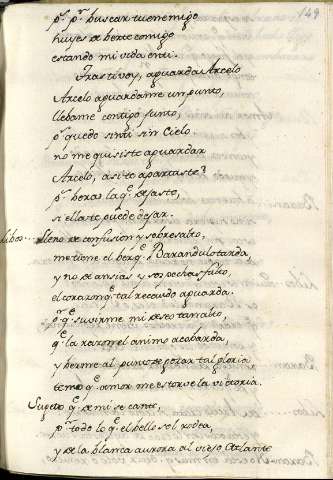 149
pr. pr. buscar tu enemigo
huyes de verte comigo
estando mi vida en ti.
Tras ti voy, aguarda Arcelo
Arcelo aguardame un punto,
llebame contigo junto,
pr. quedo sin ti sin Cielo
no me quisiste aguardar
Arcelo, asi te apartaste?
pr. la q. dejaste,
si ella te puede dejar.
lleno de confusion y sobresalto,
me tiene el ver q. Barandulo tarda,
y no de ansias y sospechas falto,
el coraçon q. tal recaudo aguarda.
pr. q. suvirme mi deseo tan alto,
q. la raxon el animo acobarda,
y verme al punto de goçar tal gloria,
temo q. amor me estorve la victoria.
Sugeto q. de mi se cante,
pr. todo lo q. el bello sol rodea,
y de la blanca aurora al viejo Atlante